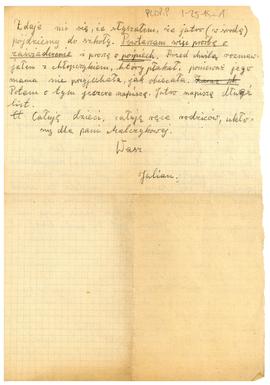 PLDI.P 1-25-K-1
Zdaje mi się, że słyszałem, że jutro (w środę)
pójdziemy do szkoły. Powtarzam więc prośbę o
zaświadczenie i proszę o Przed chwilą rozma-
wiałem z chłopczykiem, który płakał, ponieważ jego
mama nie przyjechała, jak obiecała.
Potem o tym jeszcze napiszę. Jutro napiszę długi
list.
Całuję dzieci, całuję ręce rodziców, ukło-
ny dla pani Malczykowej.
Wasz
Julian.